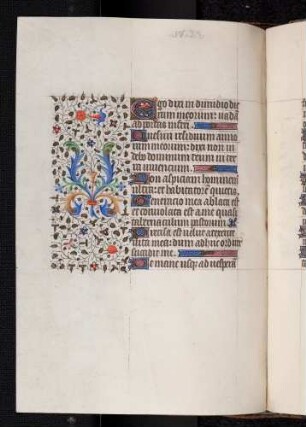 Ego dixi in dimidio die
rum meorum: uadā
ad portas inferi.
Quesiui residuum anno
rum meorum: dixi non ui
debo dominum deum in ter
ra uiuencium.
Non aspiciam hominem
ultra: et habitatorē quietis.
Generacio mea ablata est
et conuoluta est a me quasi
tabernaculum pastorum.
Precisa est uelut a texente
uita mea: dum adhuc ordirer
succidit me.
De mane usqȝ ad uesperā